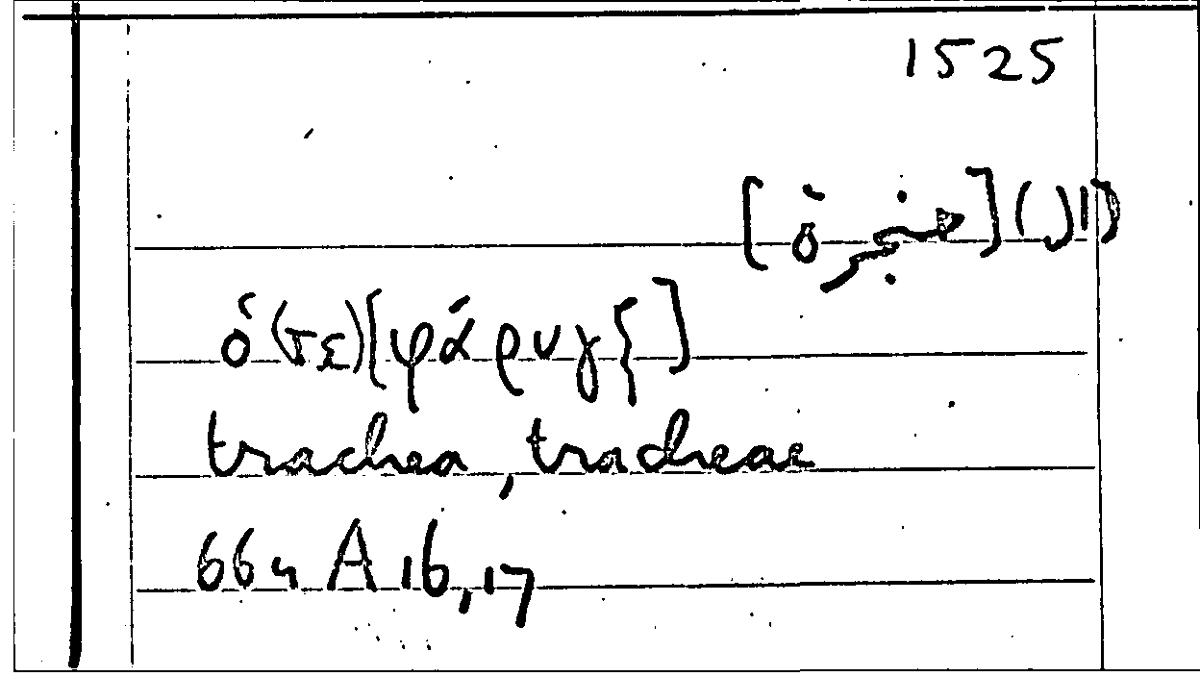 1525
(ال)[حنجرة]
ὁ (τε)[φάρυγξ]
trachea, tracheae
664 A 16,17